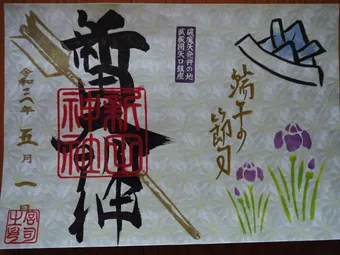 端午の
節句
破魔矢発祥の地
武蔵国矢口鎮座
新田神社
新田
神社
令和三年
五月一日
宮司